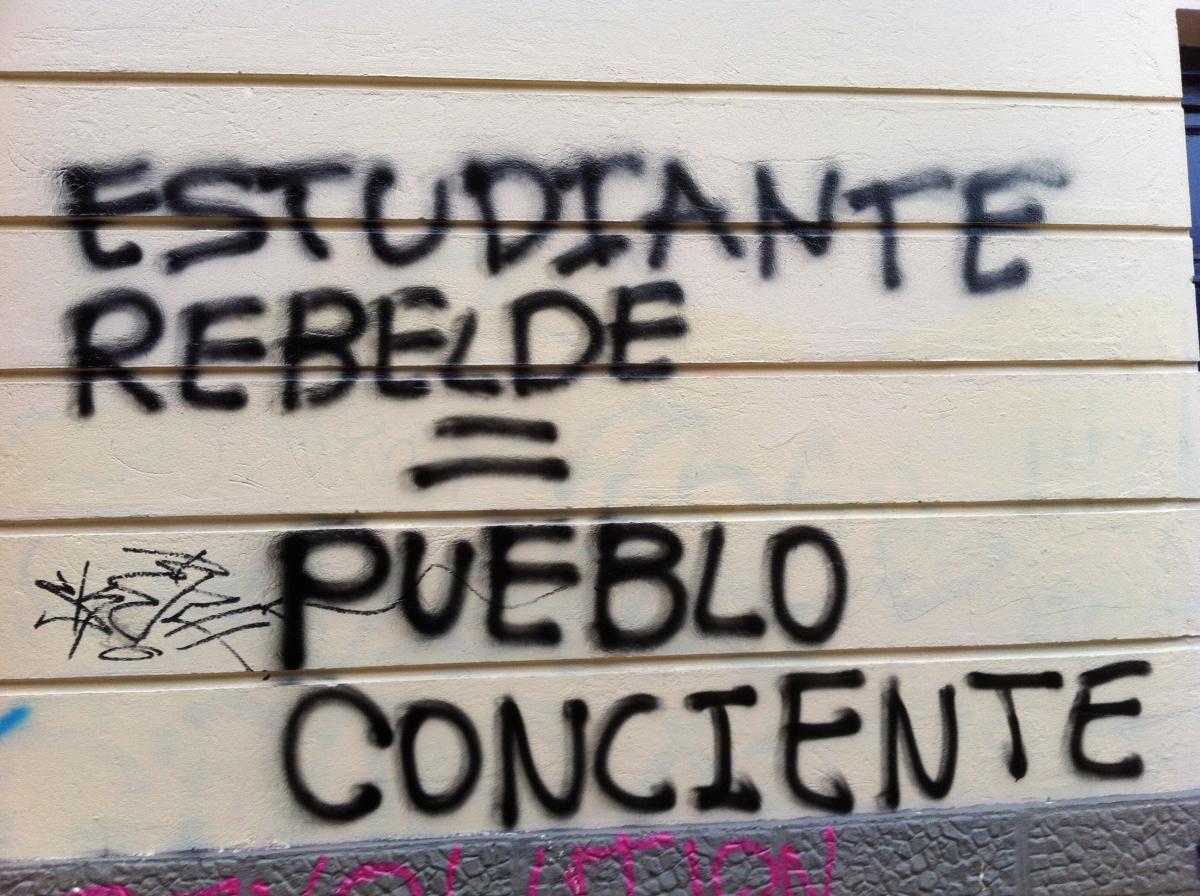 ESTUDIANTE
REBELDE
=
PUEBLO
CONCIENTE